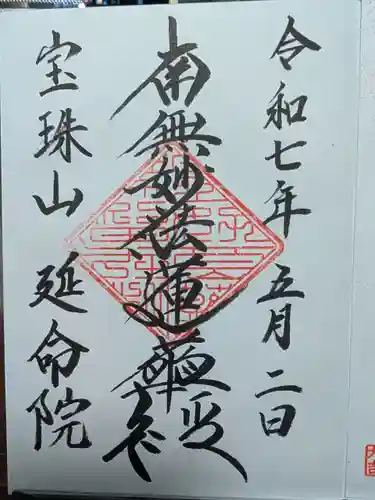 令和七年 五月 二日
南無妙法蓮華経
宝珠山 延命院